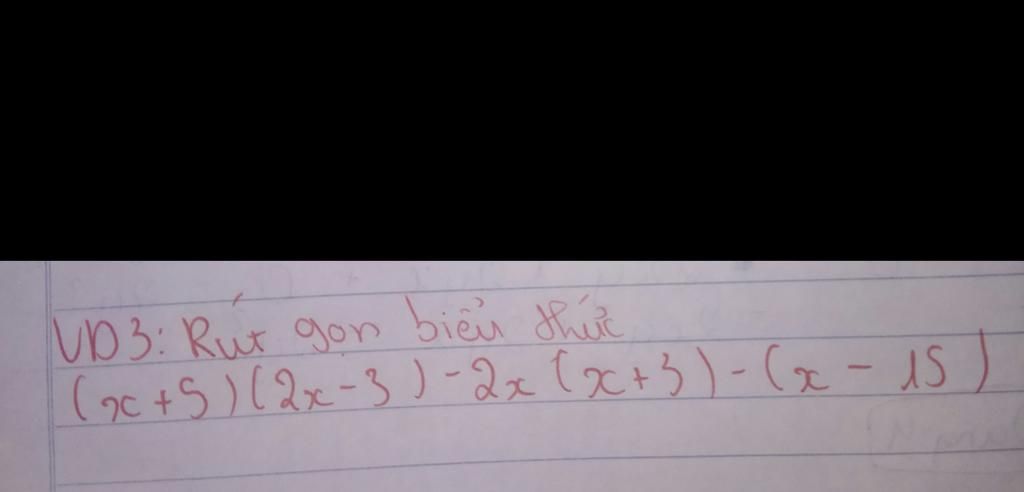 VD3: Rút gọn biểu thức
(x+5)(2x-3)-2x(x+3)-(x-15)